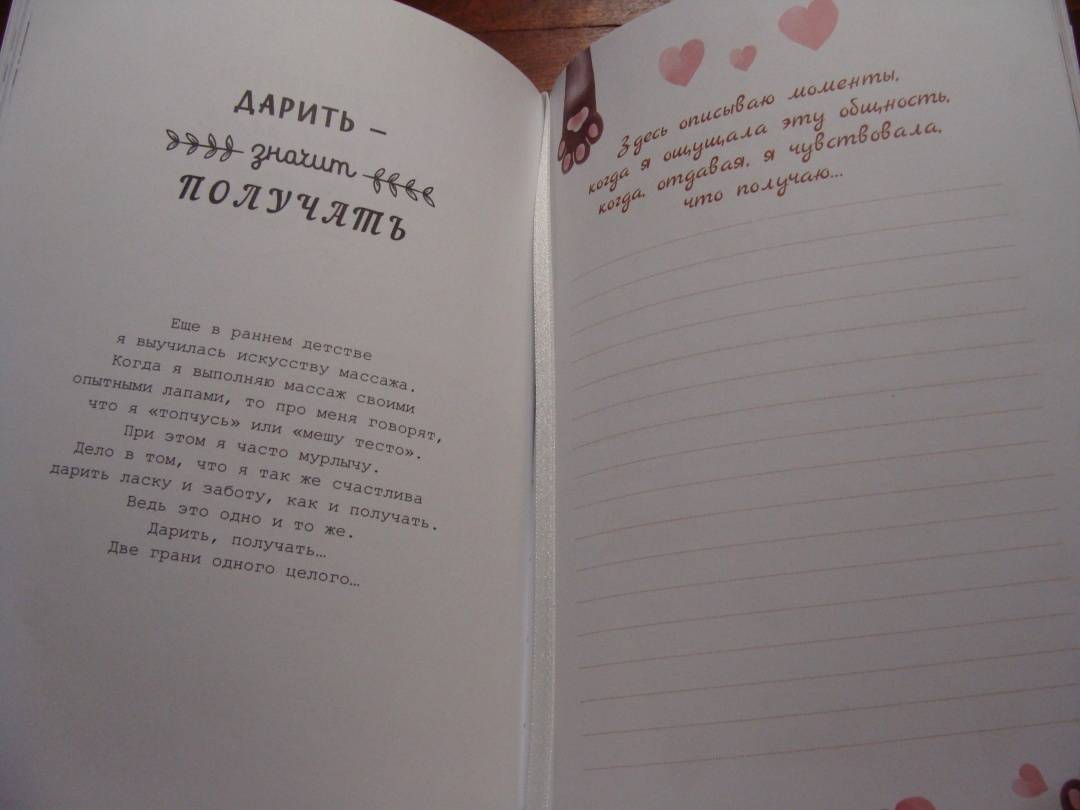 ДАРИТЬ –
значит
ПОЛУЧАТЬ
Еще в раннем детстве
я выучилась искусству массажа.
Когда я выполняю массаж своими
опытными лапами, то про меня говорят,
что я «топчусь» или «мешу тесто».
При этом я часто мурлычу.
Дело в том, что я так же счастлива
дарить ласку и заботу, как и получать.
Ведь это одно и то же.
Дарить, получать…
Две грани одного целого…
Здесь описываю моменты,
когда я ощущала эту общность,
когда, отдавая, я чувствовала,
что получаю...